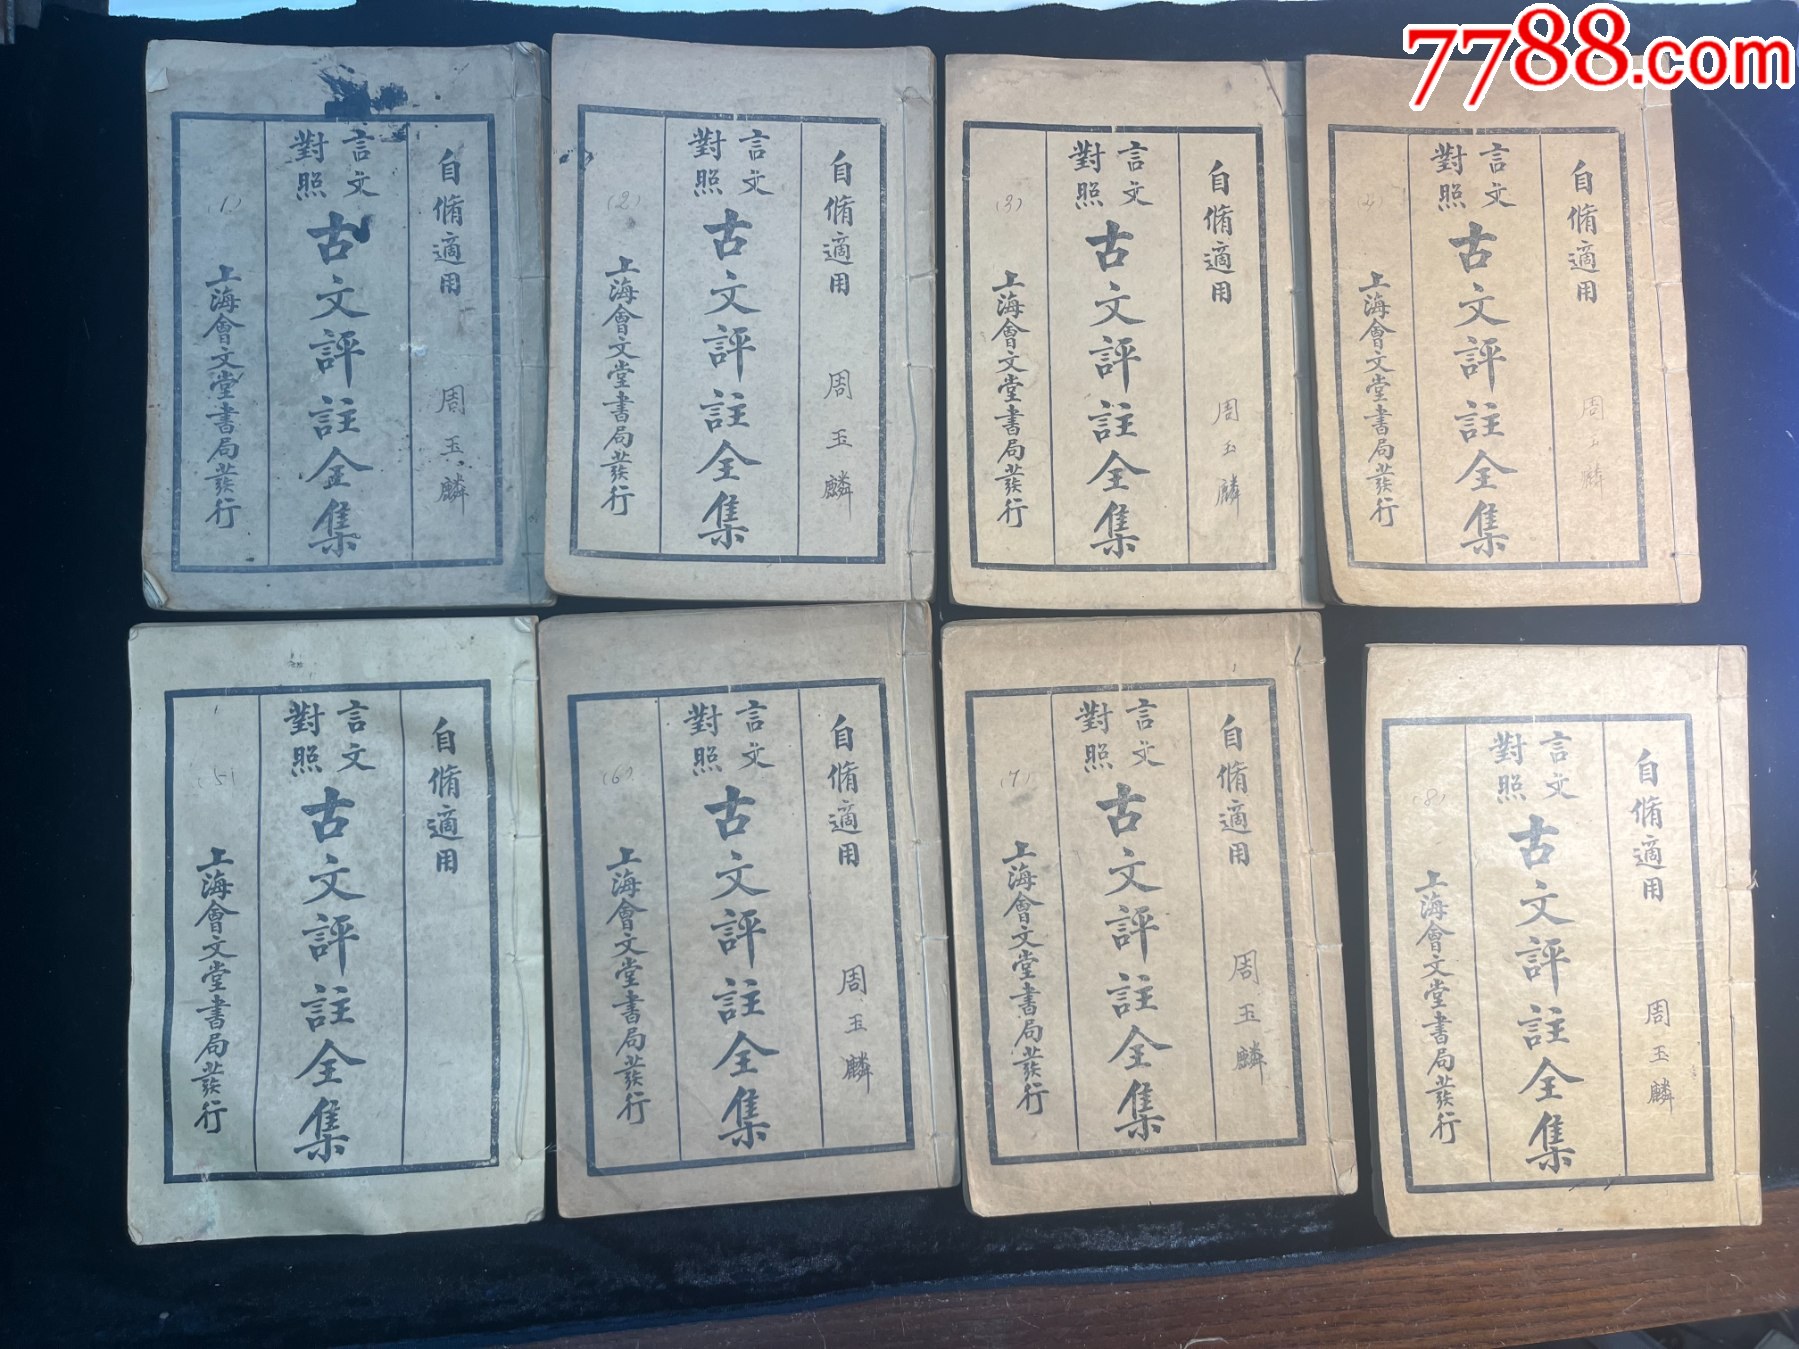 7788.com
自脩適用
周玉麟
言文對照
古文評註全集
上海會文堂書局發行
(1)
自脩適用
周玉麟
言文對照
古文評註全集
上海會文堂書局發行
(2)
自脩適用
周玉麟
言文對照
古文評註全集
上海會文堂書局發行
(3)
自脩適用
周玉麟
言文對照
古文評註全集
上海會文堂書局發行
自脩適用
言文對照
古文評註全集
上海會文堂書局發行
(5)
自脩適用
周玉麟
言文對照
古文評註全集
上海會文堂書局發行
(6)
自脩適用
周玉麟
言文對照
古文評註全集
上海會文堂書局發行
(7)
自脩適用
周玉麟
言文對照
古文評註全集
上海會文堂書局發行
(8)